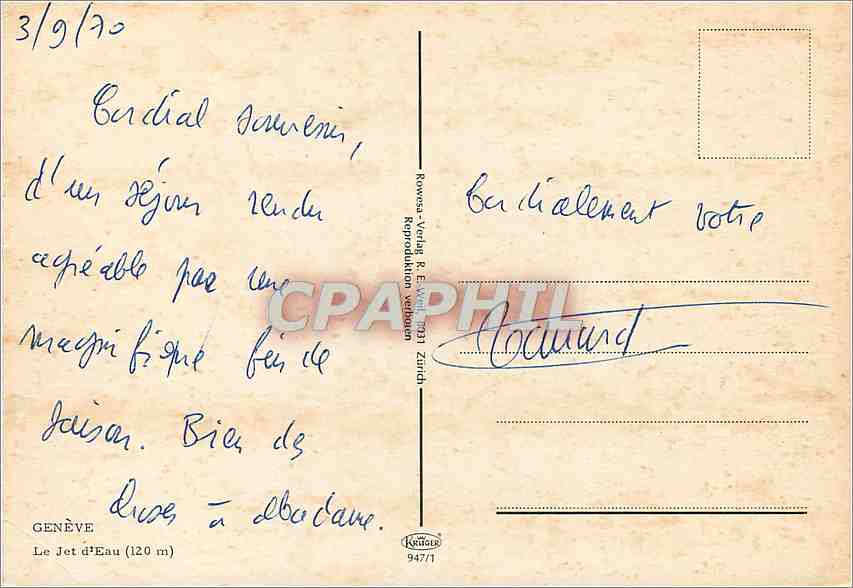 3/9/70
Cordial souvenir,
d'un séjour rendu
agréable par une
magnifique fin de
saison. Bien des
choses à Madame.
GENÈVE
Le Jet d'Eau (120 m)
Rowesa-Verlag R. E. Weiß, 8031 Zürich
Reproduktion verboten
KRÜGER
947/1
Cordialement votre
CPAPHIL